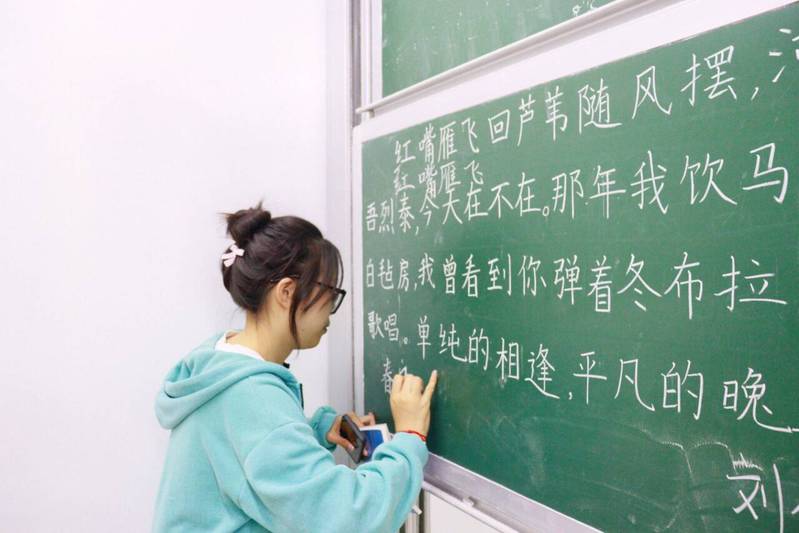 红嘴雁飞回芦苇随风摆,
红嘴雁飞
吾烈泰,今天在不在。那年我饮马
白毡房,我曾看到你弹着冬布拉
歌唱。单纯的相逢,平凡的晚
春
刘